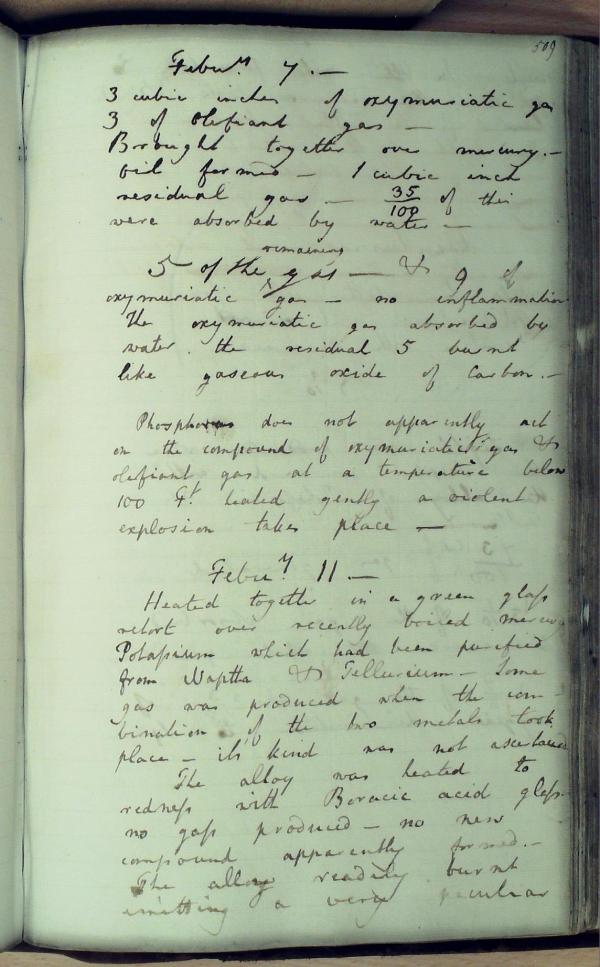 509
Febry. 7. —
3 cubic inches of oxymuriatic gas
3 of Olefiant gas —
Brought together over mercury. —
oil formed — 1 cubic inch
residual gas — 35/100 of this
were absorbed by water —
remaining
5 of the gas — & 9 of
oxymuriatic gas — no inflammation
the oxymuriatic gas absorbed by
water. the residual 5 burnt
like gaseous oxide of Carbon. —
Phosphorus does not apparently act
on the compound of oxymuriatic gas &
olefiant gas at a temperature below
100 Ft. heated gently a violent
explosion takes place —
Febry 11 —
Heated together in a green glass
retort over recently boiled mercury
Potassium which had been purified
from Naptha & Tellurium — Some
gas was produced when the com-
bination of the two metals took
place — its kind was not ascertained
The alloy was heated to
redness with Boracic acid glass —
no gass produced — no new
compound apparently formed. —
The alloy readily burnt
emitting a very peculiar